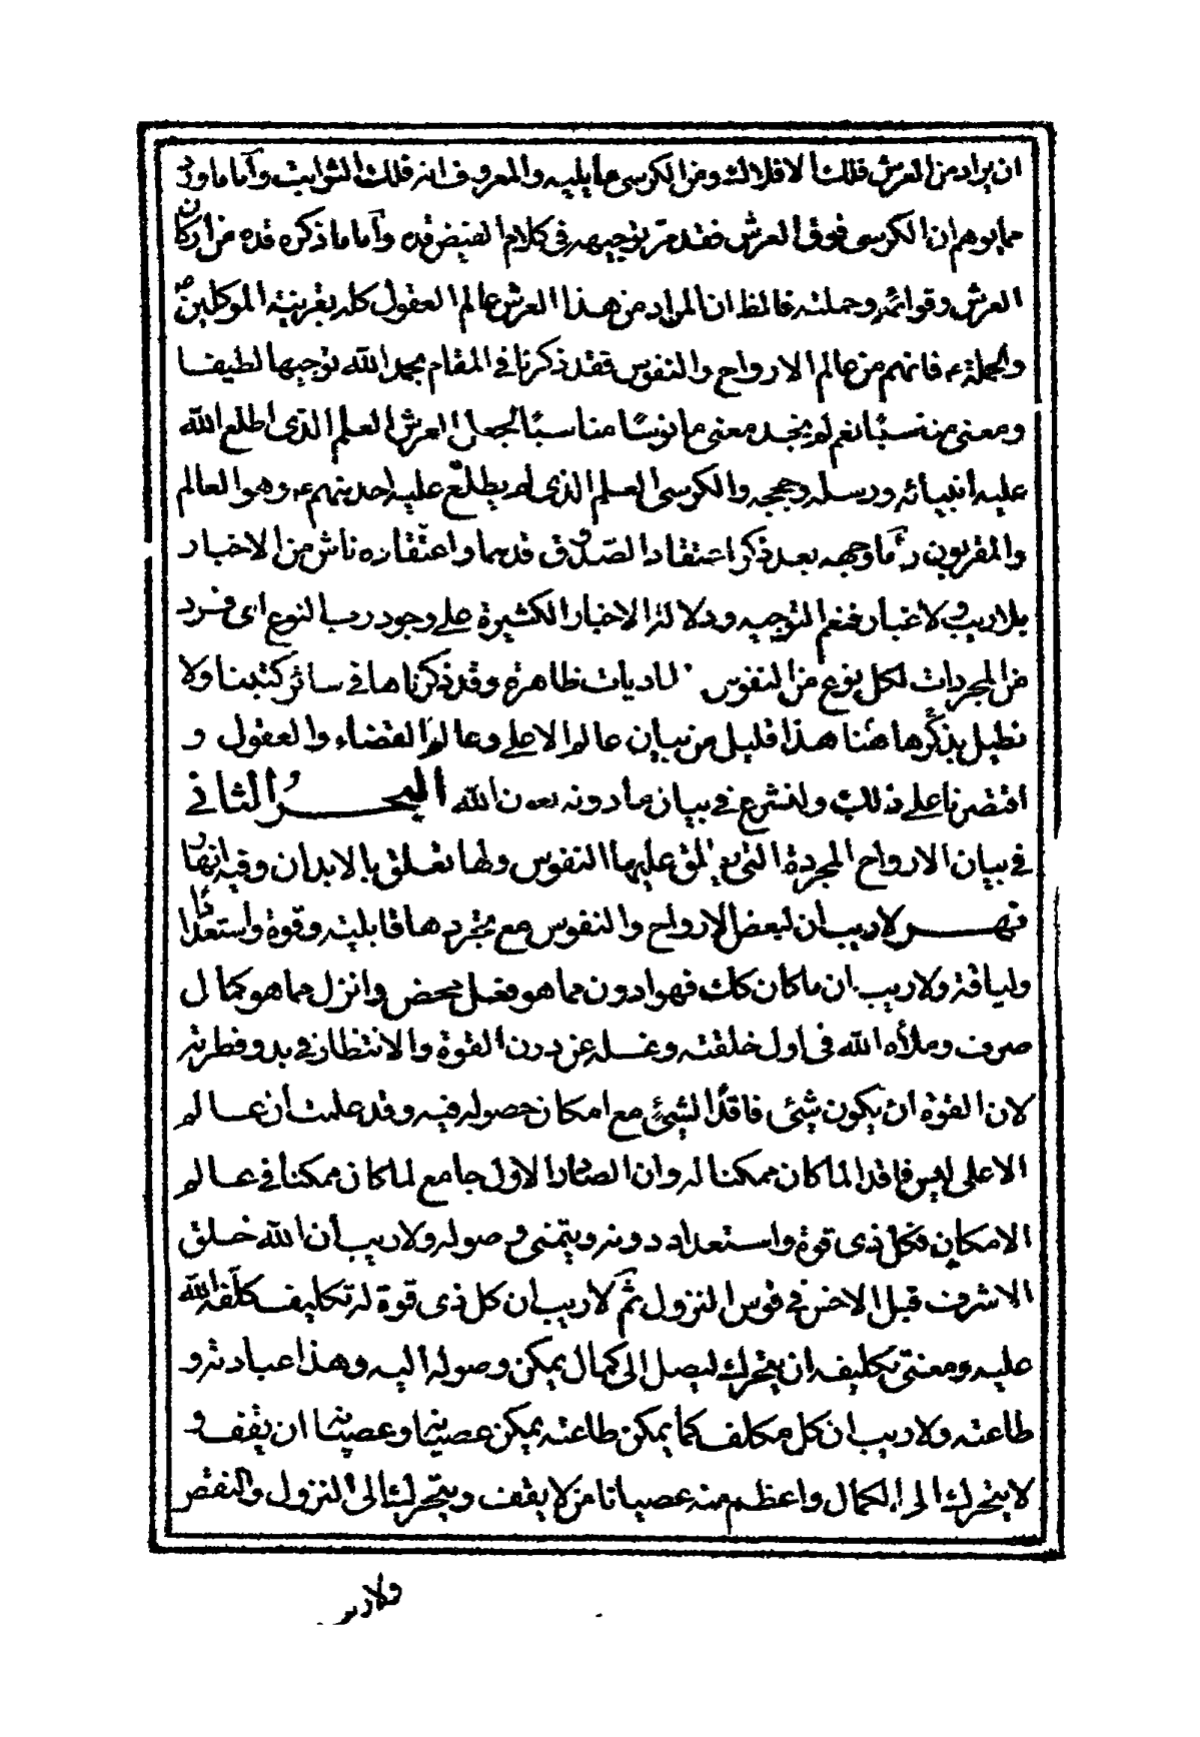 ان يراد من العرش فلك الافلاك ومن الكرسى ما يليه والمعروف انه فلك الثوابت وأما ما ورد
مما يوهم ان الكرسى فوق العرش فقد مر توجيهه فى كلام الفيض قده وأما ما ذكره قده من أركان
العرش وقوائمه وحملته فالظ ان المراد من هذا العرش عالم العقول كله بقرينة الموكلين
والحملة فانهم من عالم الارواح والنفوس فقد ذكرنا فى المقام بحمد الله توجيها لطيفا
ومعنى منتسبًا نعم لم نجد معنى مانوسًا مناسبًا لجعل العرش العلم الذى اطلع الله
عليه انبيائه ورسله وحججه والكرسى العلم الذى لم يطلع عليه احد منهم وهو العالم
والمقربون وأما وجهه بعد ذكر اعتقاد الصدوق قدهما واعتقاده ناش من الاخبار
بلا ريب ولا غبار فنعم التوجيه ودلالة الاخبار الكثيرة على وجود رب النوع اى فرد
من المجردات لكل نوع من النفوس الماديات ظاهرة وقد ذكرناها فى سائر كتبنا ولا
نطيل بذكرها هنا هذا قليل من بيان عالم الاعلى وعالم القضاء والعقول و
اقتصرنا على ذلك ولنشرع فى بيان ما دونه بعون الله البحر الثانى
فى بيان الارواح المجردة التى يطلق عليها النفوس ولها تعلق بالابدان وفيه انهار
نهر لا ريب ان لبعض الارواح والنفوس مع تجردها قابلية وقوة واستعدادا
ولياقة ولا ريب ان ما كان كك فهو ادون مما هو فعل محض وانزل مما هو كمال
صرف وملأه الله فى اول خلقته وغسله عن درن القوة والانتظار فى بدو فطرته
لان القوة ان يكون شئ فاقدًا لشئ مع امكان حصوله فيه وقد علمت أن عالم
الاعلى ليس فاقدا لما كان ممكنا له وان الصادر الاول جامع لما كان ممكنا فى عالم
الامكان فكل ذى قوة واستعداد دونه ويتمنى وصوله ولا ريب أن الله خلق
الاشرف قبل الاخس فى قوس النزول ثم لا ريب ان كل ذى قوة له تكليف كلفه الله
عليه ومعنى تكليفه ان يتحرك ليصل الى كمال يمكن وصوله اليه وهذا عبادته و
طاعته ولا ريب ان كل مكلف كما يمكن طاعته يمكن عصيانها وعصيانها ان يقف و
لا يتحرك الى الكمال واعظم منه عصيانا من لا يقف ويتحرك الى النزول والنقص
ولا ريب